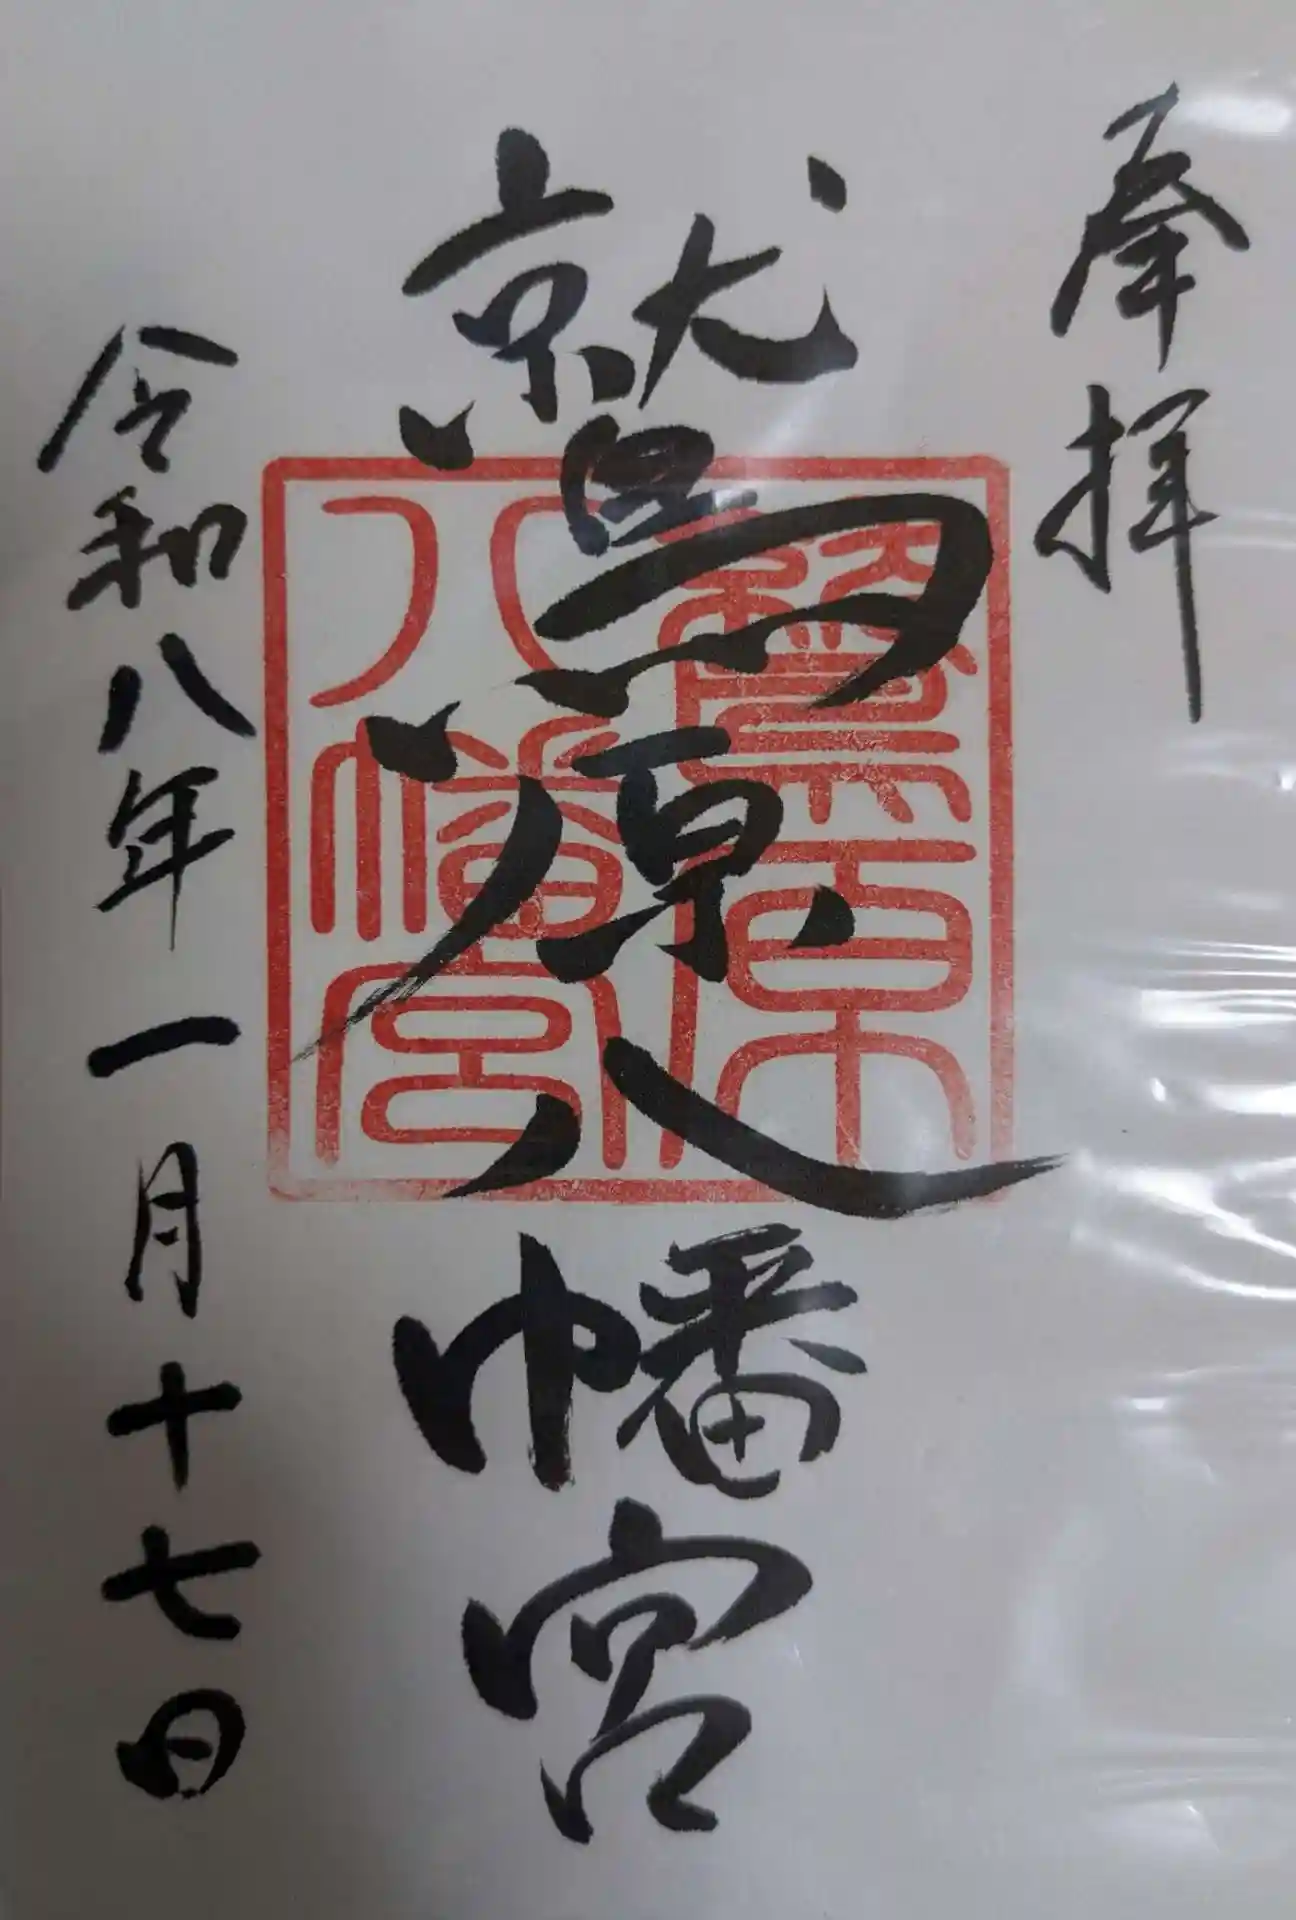 奉拝
鷲原八幡宮
令和八年一月十七日
鷲原
八幡宮